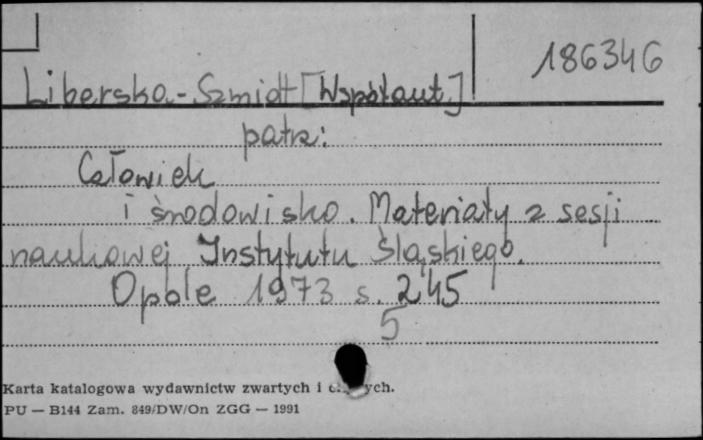 186346
Liberska-Szmidt [Współaut.]
patrz:
Człowiek
i środowisko. Materiały z sesji
naukowej Instytutu Śląskiego.
Opole 1973 s. 245
5
Karta katalogowa wydawnictw zwartych i
PU — B144 Zam. 849/DW/On ZGG — 1991